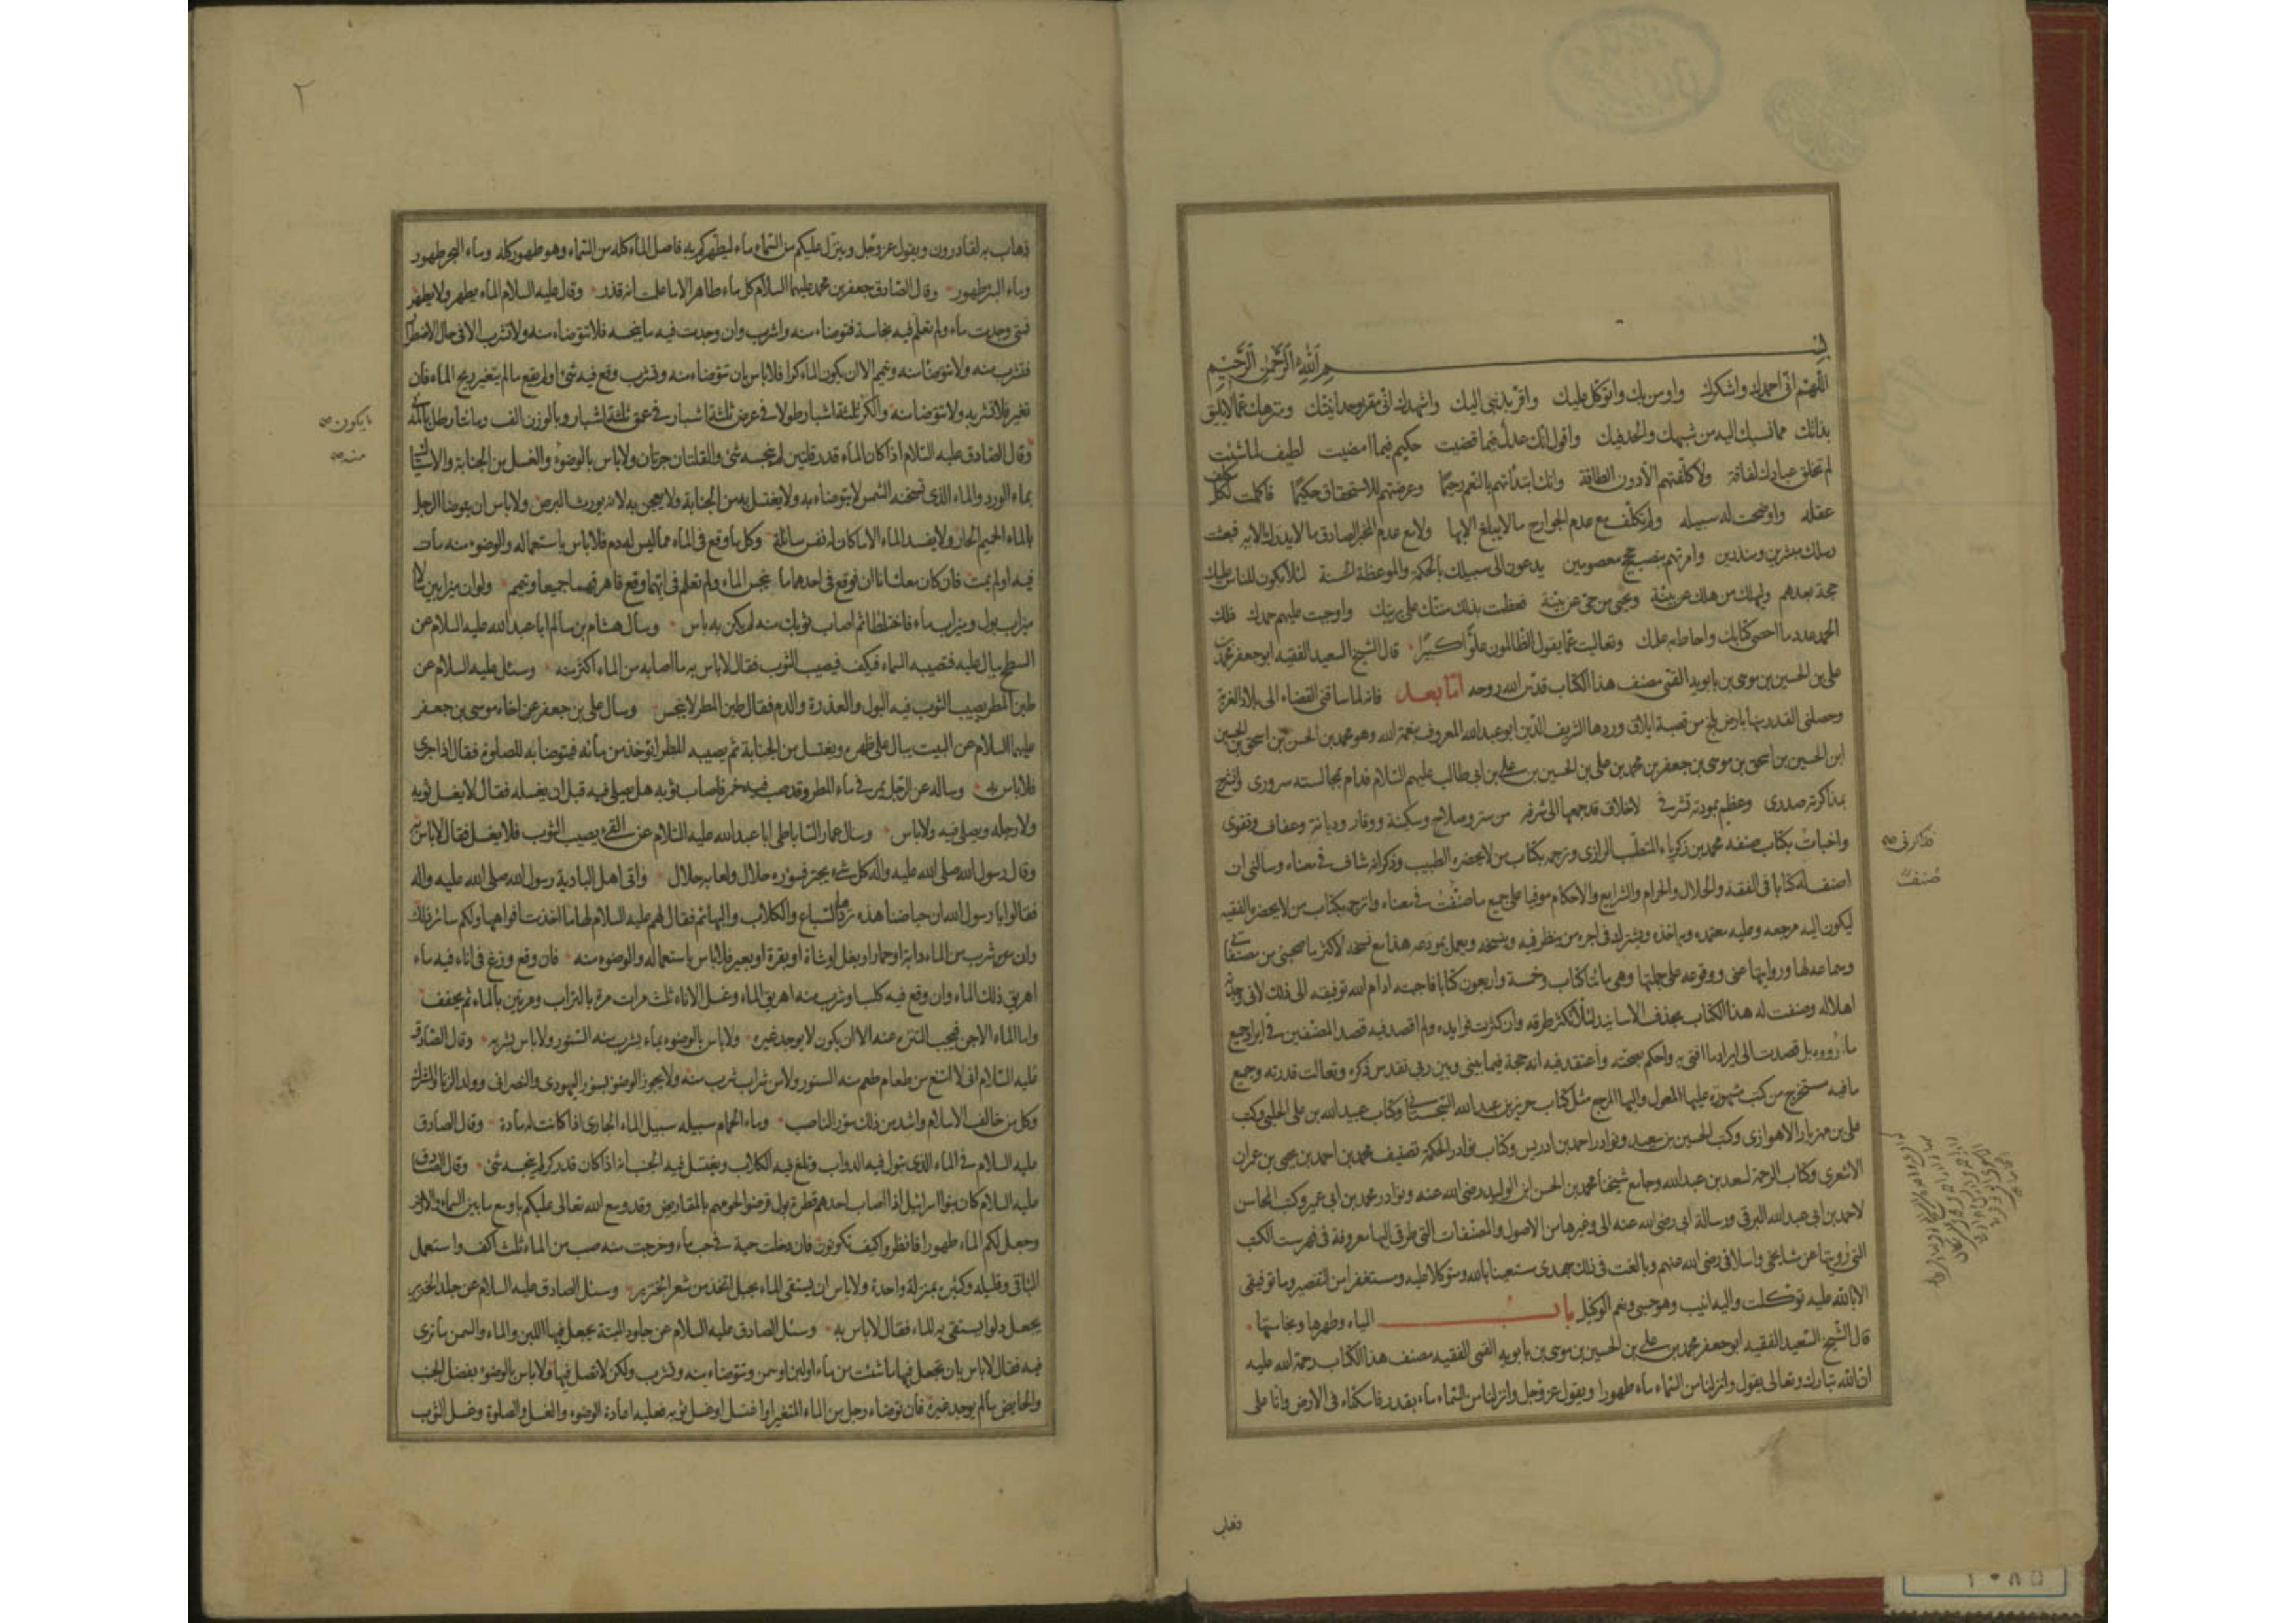 بسم الله الرحمن الرحيم
اللهم انى احمدك واشكرك واومن بك واتوكل عليك واقر بذنبى اليك واشهدك انى مقر بوحدانيتك ومنزهك عما لا يليق
بذاتك مما نسبك اليه من شبهك والحد فيك واقول انك عدل فيما قضيت حكيم فيما امضيت لطيف لما شئت
لم تخلق عبادك لفاقة ولا كلفتهم الا دون الطاقة وانك ابتدأتهم بالنعم رحيما وعرضتهم للاستحقاق حكيما فاكملت لكل مكلف
عقله واوضحت له سبيله ولم تكلف مع عدم الجوارح ما لا يبلغ الا بها ولا مع عدم المخبر الصادق ما لا يدرك الا به فبعثت
رسلك مبشرين ومنذرين وامرتهم بنصب حجج معصومين يدعون الى سبيلك بالحكمة والموعظة الحسنة لئلا يكون للناس عليك
حجة بعدهم وليهلك من هلك عن بينة ويحيى من حى عن بينة فعظمت بذلك منتك على بريتك واوجبت عليهم حمدك فلك
الحمد عدد ما احصى كتابك واحاط به علمك وتعاليت عما يقول الظالمون علوا كبيرا قال الشيخ السعيد الفقيه ابو جعفر محمد بن
على بن الحسين بن موسى بن بابويه القمى مصنف هذا الكتاب قدس الله روحه اما بعد فانه لما ساقنى القضاء الى بلاد الغربة
وحصلنى القدر منها بارض بلخ من قصبة ايلاق وردها الشريف الدين ابو عبدالله المعروف بنعمة الله وهو محمد بن الحسن بن اسحق بن الحسين
ابن الحسين بن اسحق بن موسى بن جعفر بن محمد بن على بن الحسين بن على بن ابى طالب عليهم السلام فدام بمجالسته سرورى وانشرح
بمذاكرته صدرى وعظم بمودته تشرفى لاخلاق قد جمعها الى شرفه من ستر وصلاح وسكينة ووقار وديانة وعفاف وتقوى
واخبات بكتاب صنفه محمد بن زكرياء المتطبب الرازى وترجمه بكتاب من لا يحضره الطبيب وذكر انه شاف فى معناه وسالنى ان
اصنف له كتابا فى الفقه والحلال والحرام والشرايع والاحكام موفيا على جميع ما صنفت فى معناه واترجمه بكتاب من لا يحضره الفقيه
ليكون اليه مرجعه وعليه معتمده وبه اخذه ويشترك فى اجره من ينظر فيه وينسخه ويعمل بمودعه هذا مع نسخه لاكثر ما صحبنى من مصنفاتى
وسماعه لها وروايتها عنى ووقوفه على جملتها وهى مائتا كتاب وخمسة واربعون كتابا فاجبته ادام الله توفيقه الى ذلك لانى وجدته
اهلا له وصنفت له هذا الكتاب بحذف الاسانيد لئلا تكثر طرقه وان كثرت فوايده ولم اقصد فيه قصد المصنفين فى ايراد جميع
ما رووه بل قصدت الى ايراد ما افتى به واحكم بصحته واعتقد فيه انه حجة فيما بينى وبين ربى تقدس ذكره وتعالت قدرته وجميع
ما فيه مستخرج من كتب مشهورة عليها المعول واليها المرجع مثل كتاب حريز بن عبدالله السجستانى وكتاب عبيدالله بن على الحلبى وكتب
على بن مهزيار الاهوازى وكتب الحسين بن سعيد ونوادر احمد بن ادريس وكتاب نوادر الحكمة تصنيف محمد بن احمد بن يحيى بن عمران
الاشعرى وكتاب الرحمة لسعد بن عبدالله وجامع شيخنا محمد بن الحسن ابن الوليد رضى الله عنه ونوادر محمد بن ابى عمير وكتب المحاسن
لاحمد بن ابى عبدالله البرقى ورسالة ابى رضى الله عنه الى وغيرها من الاصول والمصنفات التى طرقى اليها معروفة فى فهرست الكتب
التى رويتها عن مشايخى واسلافى رضى الله عنهم وبالغت فى ذلك جهدى مستعينا بالله ومتوكلا عليه ومستغفرا من التقصير وما توفيقى
الا بالله عليه توكلت واليه انيب وهو حسبى ونعم الوكيل باب المياه وطهرها ونجاستها
قال الشيخ السعيد الفقيه ابو جعفر محمد بن على بن الحسين بن موسى بن بابويه القمى الفقيه مصنف هذا الكتاب رحمة الله عليه
ان الله تبارك وتعالى يقول وانزلنا من السماء ماء طهورا ويقول عز وجل وانزلنا من السماء ماء بقدر فاسكناه فى الارض وانا على
ذهاب
صنفت
٢
ذهاب به لقادرون ويقول عز وجل وينزل عليكم من السماء ماء ليطهركم به فاصل الماء كله من السماء وهو طهور كله وماء البحر طهور
وماء البئر طهور وقال الصادق جعفر بن محمد عليهما السلام كل ماء طاهر الا ما علمت انه قذر وقال عليه السلام الماء يطهر ولا يطهر
فمتى وجدت ماء ولم تعلم فيه نجاسة فتوضاء منه واشرب وان وجدت فيه ما ينجسه فلا تتوضاء منه ولا تشرب الا فى حال الاضطرار
فتشرب منه ولا تتوضأ منه وتيمم الا ان يكون الماء كرا فلا باس بان تتوضاء منه وتشرب وقع فيه شئ او لم يقع ما لم يتغير ريح الماء فان
تغير فلا تشربه ولا تتوضا منه والكر ثلثة اشبار طولا فى عرض ثلثة اشبار فى عمق ثلثة اشبار وبالوزن الف ومائتا رطل بالمدنى
وقال الصادق عليه السلام اذا كان الماء قدر قلتين لم ينجسه شئ والقلتان جرتان ولا باس بالوضوء والغسل من الجنابة والاستياك
بماء الورد والماء الذى تسخنه الشمس لا يتوضاء به ولا يغتسل به من الجنابة ولا يعجن به لانه يورث البرص ولا باس ان يتوضا الرجل
بالماء الحميم الحار ولا يفسد الماء الا ما كان له نفس سائلة وكل ما وقع فى الماء مما ليس له دم فلا باس باستعماله والوضوء منه مات
فيه او لم يمت فان كان معك اناآن فوقع فى احدهما ما ينجس الماء ولم تعلم فى ايهما وقع فاهرقهما جميعا وتيمم ولو ان ميزابين سالا
ميزاب بول وميزاب ماء فاختلطا ثم اصاب ثوبك منه لم يكن به باس وسأل هشام بن سالم ابا عبدالله عليه السلام عن
السطح يبال عليه فتصيبه السماء فيكف فيصيب الثوب فقال لا باس به ما اصابه من الماء اكثر منه وسئل عليه السلام عن
طين المطر يصيب الثوب فيه البول والعذرة والدم فقال طين المطر لا ينجس وسال على بن جعفر عن اخاه موسى بن جعفر
عليهما السلام عن البيت يبال على ظهره ويغتسل من الجنابة ثم يصيبه المطر ايؤخذ من مائه فيتوضا به للصلوة فقال اذا جرى
فلا باس به وساله عن الرجل يمر فى ماء المطر وقد صب فيه خمر فاصاب ثوبه هل يصلى فيه قبل ان يغسله فقال لا يغسل ثوبه
ولا رجله ويصلى فيه ولا باس وسال عمار الساباطى ابا عبدالله عليه السلام عن القئ يصيب الثوب فلا يغسل فقال لا باس به
وقال رسول الله صلى الله عليه واله كل شئ يجتر فسؤره حلال ولعابه حلال واتى اهل البادية رسول الله صلى الله عليه واله
فقالوا يا رسول الله ان حياضنا هذه تردها السباع والكلاب والبهائم فقال لهم عليه السلام لها ما اخذت افواهها ولكم سائر ذلك
وان شرب من الماء دابة او حمار او بغل او شاة او بقرة او بعير فلا باس باستعماله والوضوء منه فان وقع وزغ فى اناء فيه ماء
اهريق ذلك الماء وان وقع فيه كلب او شرب منه اهريق الماء وغسل الاناء ثلث مرات مرة بالتراب ومرتين بالماء ثم يجفف
واما الماء الاجن فيجب التنزه عنه الا ان يكون لا يوجد غيره ولا باس بالوضوء بماء يشرب منه السنور ولا باس بشربه وقال الصادق
عليه السلام انى لا امتنع من طعام طعم منه السنور ولا من شراب شرب منه ولا يجوز الوضوء بسؤر اليهودى والنصرانى وولد الزنا والمشرك
وكل من خالف الاسلام واشد من ذلك سؤر الناصب وماء الحمام سبيله سبيل الماء الجارى اذا كانت له مادة وقال الصادق
عليه السلام فى الماء الذى تبول فيه الدواب وتلغ فيه الكلاب ويغتسل فيه الجنب انه اذا كان قدر كر لم ينجسه شئ وقال الصادق
عليه السلام كان بنو اسرائيل اذا اصاب احدهم قطرة بول قرضوا لحومهم بالمقاريض وقد وسع الله تعالى عليكم باوسع ما بين السماء والارض
وجعل لكم الماء طهورا فانظروا كيف تكونون فان دخلت حية فى حب ماء وخرجت منه صب من الماء ثلث اكف واستعمل
الباقى وقليله وكثيره بمنزلة واحدة ولا باس ان يستقى الماء بحبل اتخذ من شعر الخنزير وسئل الصادق عليه السلام عن جلد الخنزير
يجعل دلوا يستقى به الماء فقال لا باس به وسئل الصادق عليه السلام عن جلود الميتة يجعل فيها اللبن والماء والسمن ما ترى
فيه فقال لا باس بان تجعل فيها ما شئت من ماء او لبن او سمن وتتوضاء منه وتشرب ولكن لا تصل فيها ولا باس بالوضوء بفضل الجنب
والحايض ما لم يوجد غيره فان توضاء رجل من الماء المتغير او اغتسل او غسل ثوبه فعليه اعادة الوضوء والغسل والصلوة وغسل الثوب
ما يكون
منه